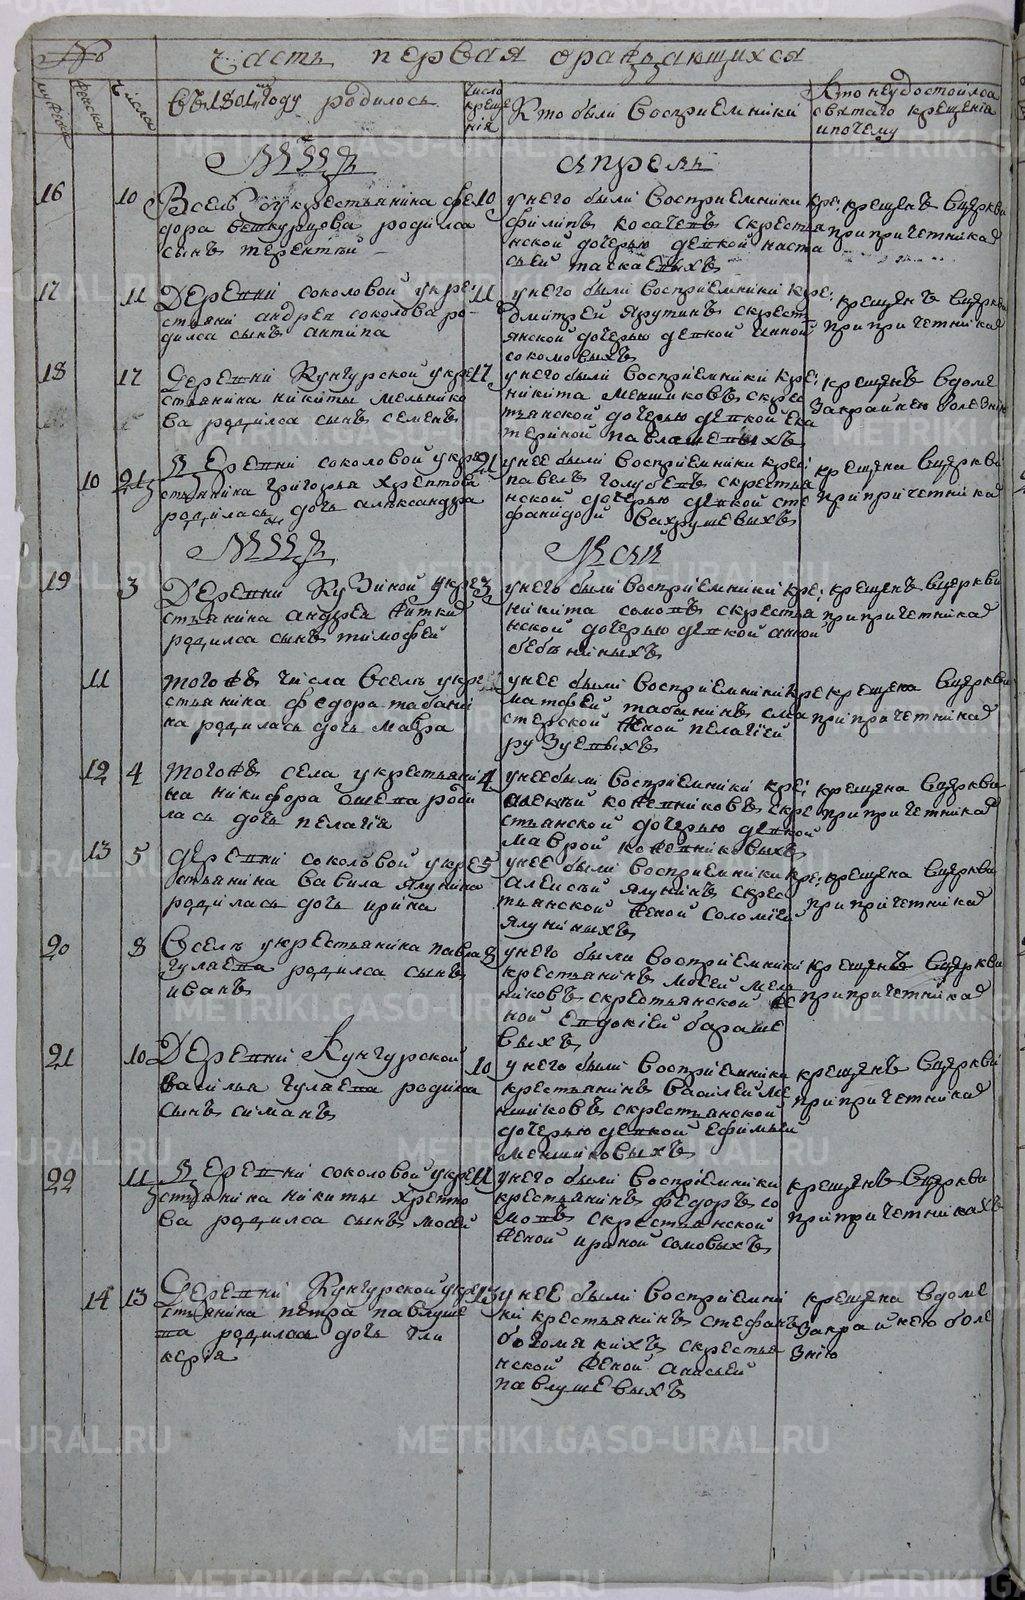 №
Часть первая ораждающихся
мужеска
женска
числа
Въ 1801м году родилось
число
креще
нія
Кто были восприемники
Кто неудостоился
святаго крещенія
и почему
Мцъ
апрель
16
10
Всель укрестьянина фе
дора родился
сынъ терентьй
10
унего были восприемники кре:
филипъ косачевъ скрестья
нской дочерью девкой наста
сьей таскаевыхъ
крещенъ вцеркви
припричетникахъ
17
11
Деревни соколовой укре
стьяни андрея соколова ро-
дился сынъ антипа
11
унего были восприемники кре:
дмитрей ярутинъ скресть
янской дочерью девкой анной
соколовыхъ
крещенъ вцеркви
припричетникахъ
18
17
Деревни Кунгурской укре
стьянина никиты мельнико
ва родился сынъ семенъ
17
унего были восприемники кре:
никита меншиковъ скрес
тьянской дочерью девкой ека
териной павлушевыхъ
крещенъ вдоме
закрайнею болезнию
10
21
Деревни соколовой укре
стьянина григорья хрептова
родилась дочь александра
21
унее были восприемники кре:
павелъ голубевъ скрестья
нской дочерью девкой сте
фанидой вахрушевыхъ
крещена вцеркви
припричетникахъ
Мцъ
Маий
19
3
Деревни Кузиной укре
стьянина андрея житких
родился сынъ тимофей
3
унего были восприемники кре:
никита сомовъ скрестья
нской дочерью девкой анной
бебениныхъ
крещенъ вцеркви
припричетникахъ
11
тогожъ числа всель укре
стьянина федора табани
на родилась дочь мавра
унее были восприемники кре
матфей табанинъ сма
стерской женой пелагией
рузуевыхъ
крещена вцеркви
припричетникахъ
12
4
тогожъ села укрестьяни
на никифора роди
лась дочь пелагия
4
унее были восприемники кре:
алексьй кожевниковъ скре
стьянской дочерью девкой
маврой кожевниковыхъ
крещена вцеркви
припричетникахъ
13
5
деревни соколовой укре
стьянина вавила ялунина
родилась дочь ирина
5
унее были восприемники кре:
алексьй ялунинъ скрес
тьянской женой соломией
ялуниныхъ
крещена вцеркви
припричетникахъ
20
8
Всель укрестьянина павла
гуляева родился сынъ
иванъ
8
унего были восприемники
крестьянинъ моисей мель
никовъ скрестьянской же
ной евдокией бараше
выхъ
крещенъ вцеркви
припричетникахъ
21
10
Деревни Кунгурской
василья гуляева родился
сынъ симанъ
10
унего были восприемники
крестьянинъ василей ме
ншиковъ скрестьянской
дочерью девкой ефимьей
меншиковыхъ
крещенъ вцеркви
припричетникахъ
22
11
Деревни соколовой укре
стьянина никиты хрепто
ва родился сынъ мосей
11
унего были восприемники
крестьянинъ федоръ со
мовъ скрестьянской
женой ириной сомовыхъ
крещенъ вцеркви
припричетникахъ
14
13
Деревни Кунгурской укре
стьянина петра павлуше
ва родилась дочь гли
керия
13
унее были восприемни
ки крестьянинъ стефанъ
богомяккихъ скрестья
нской женой анисьей
павлушевыхъ
крещена вдоме
закрайнею боле
знию
METRIKI.GASO-URAL.RU